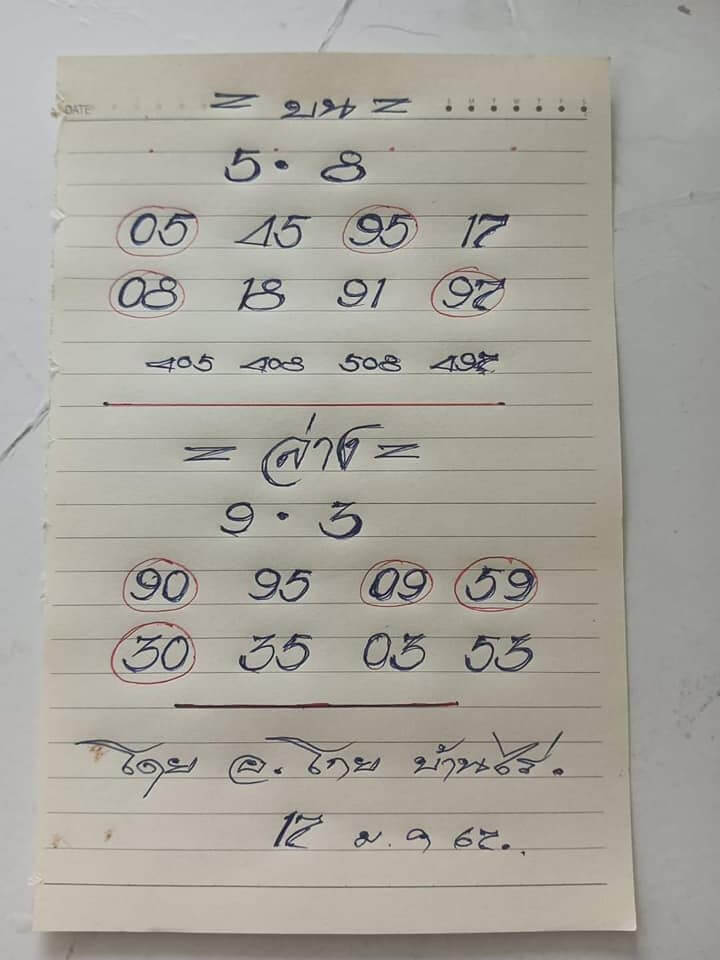 DATE S M T W T F S
= บน =
5 · 8
05 45 95 17
08 18 91 97
405 408 508 497
= ล่าง =
9 · 3
90 95 09 59
30 35 03 53
โดย อ. โกย บ้านไร่.
17 ม.ค 67.